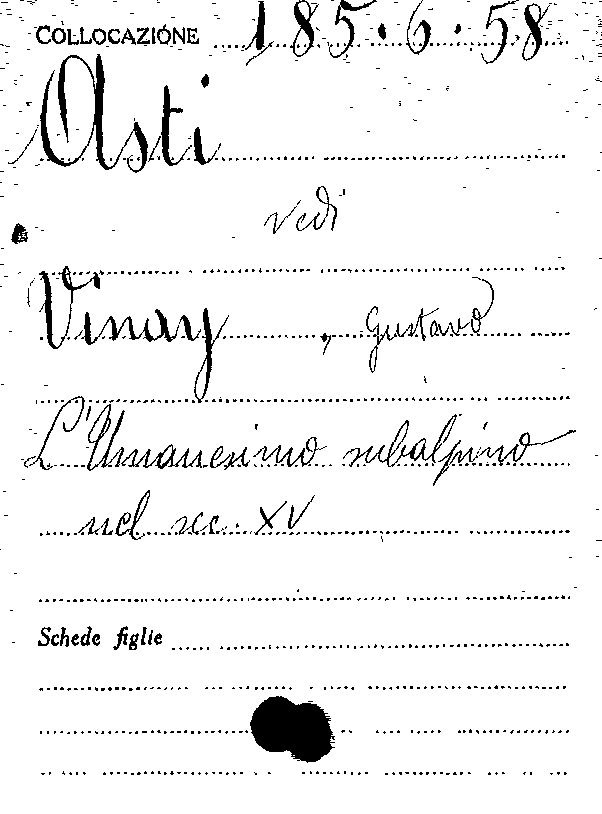 COLLOCAZIONE 185.6.58
Asti
vedi
Vinay, Gustavo
L'Umanesimo subalpino
nel sec. XV
Schede figlie